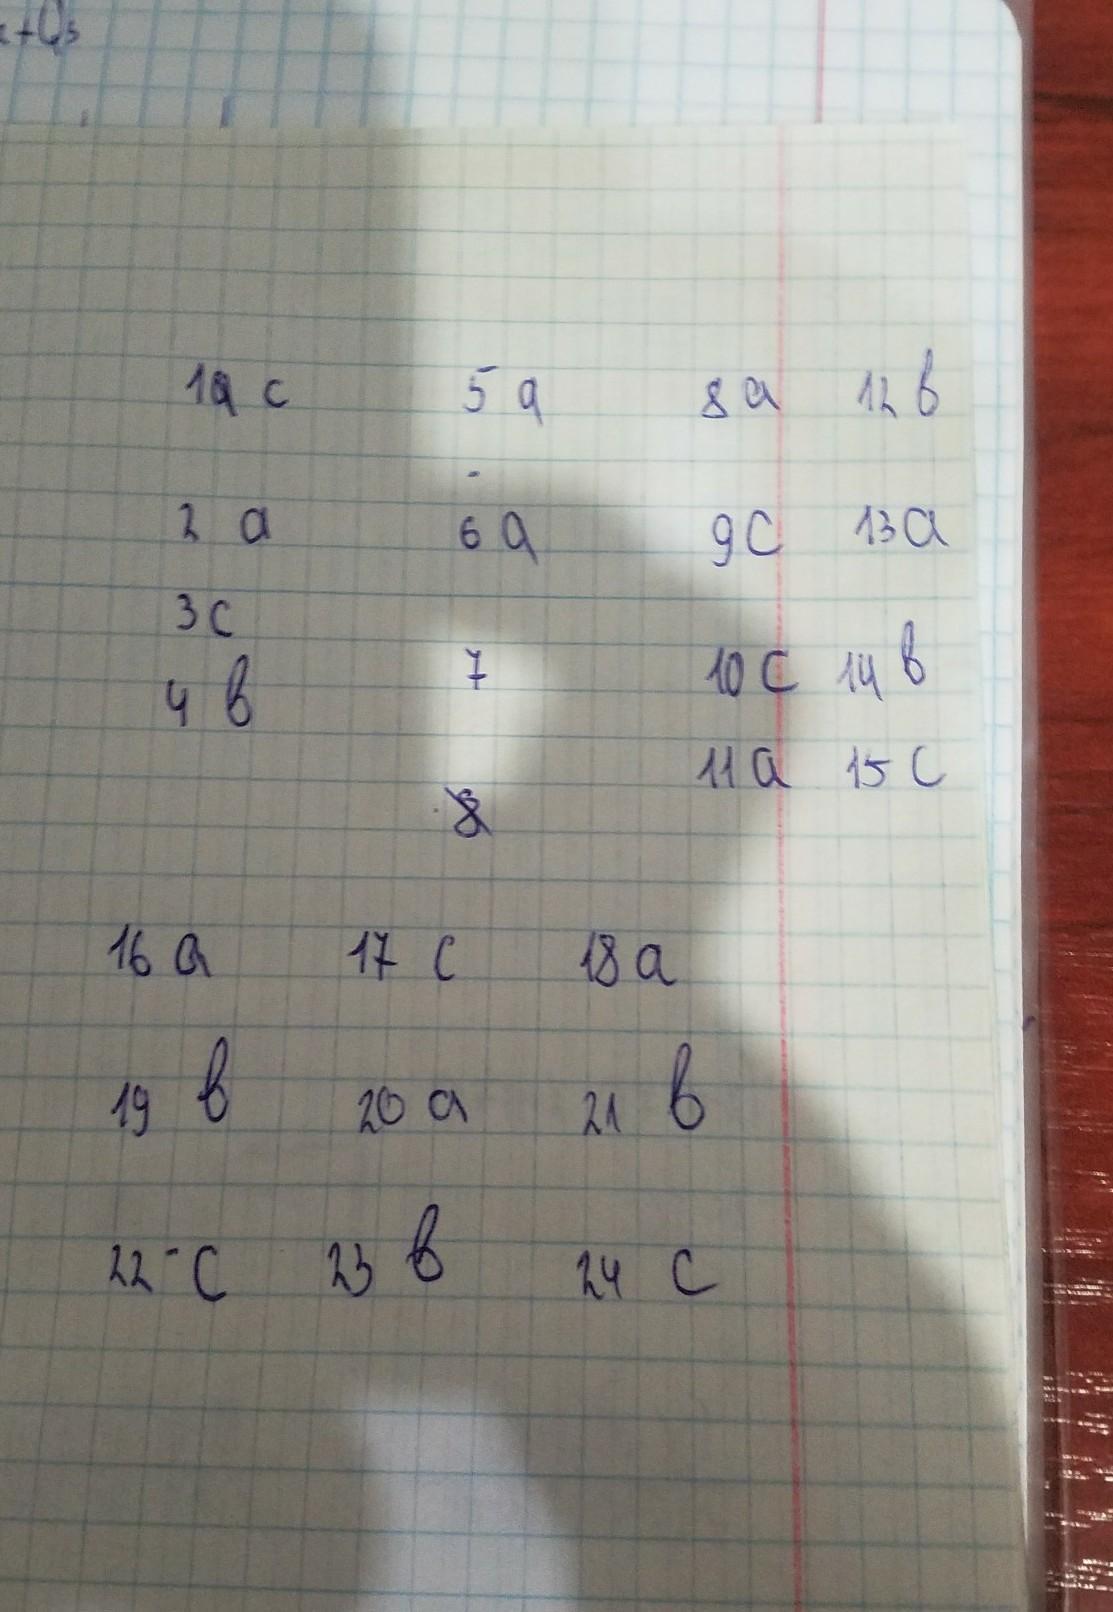 1a c 5 a 8 a 12 в
2 a 6 a 9 c 13 a
3 c
4 в 7 10 c 14 в
11 a 15 c
8
16 a 17 c 18 a
19 в 20 a 21 в
22 - c 23 в 24 c